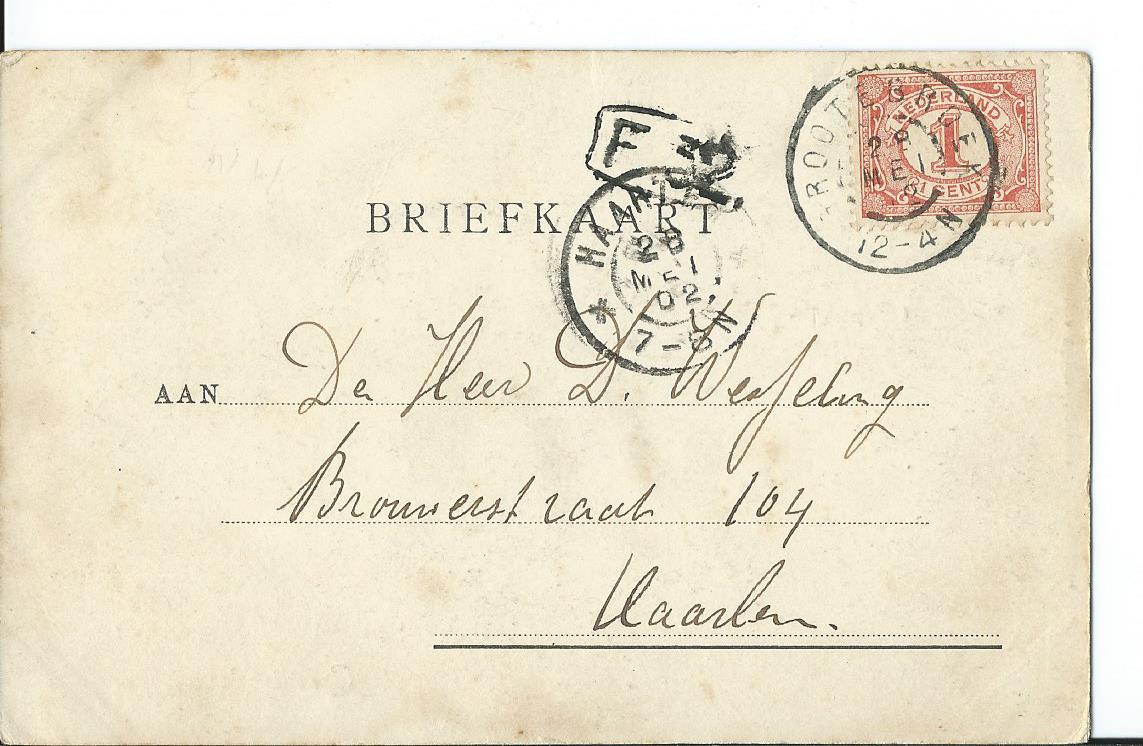 NEDERLAND
1
CENT
GROOTEBROEK
28
MEI
12-4N
F
BRIEFKAART
HAARLEM
28
MEI
02
7-8N
AAN De Heer D. Wesseling
Brouwerstraat 104
Haarlem.